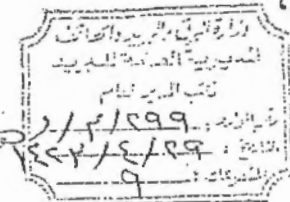 وزارة البرق والبريد والهاتف
المديرية العامة للبريد
مكتب المدير العام
رقم الوارد : ٢٩٩/٣/١
التاريخ : ٢٩/٤/١٤٢٣
المشفوعات : ٩